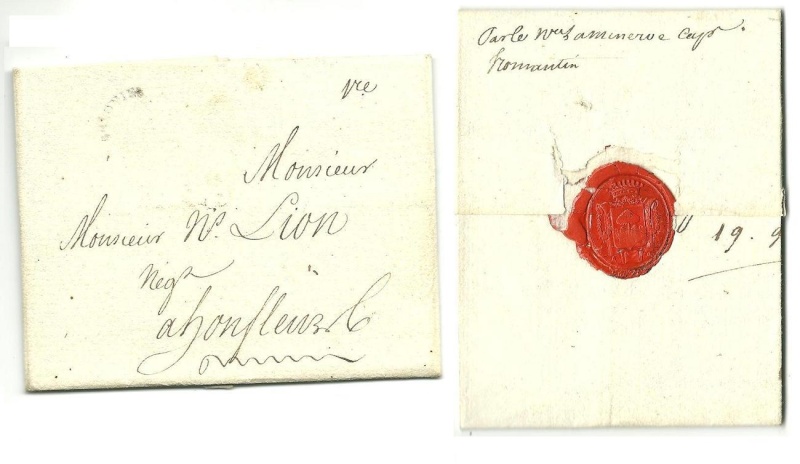 pre
Monsieur
Monsieur N. Lion
Negt
a honfleur
Par le Nre La minerve Cape
fromantin
19. 9